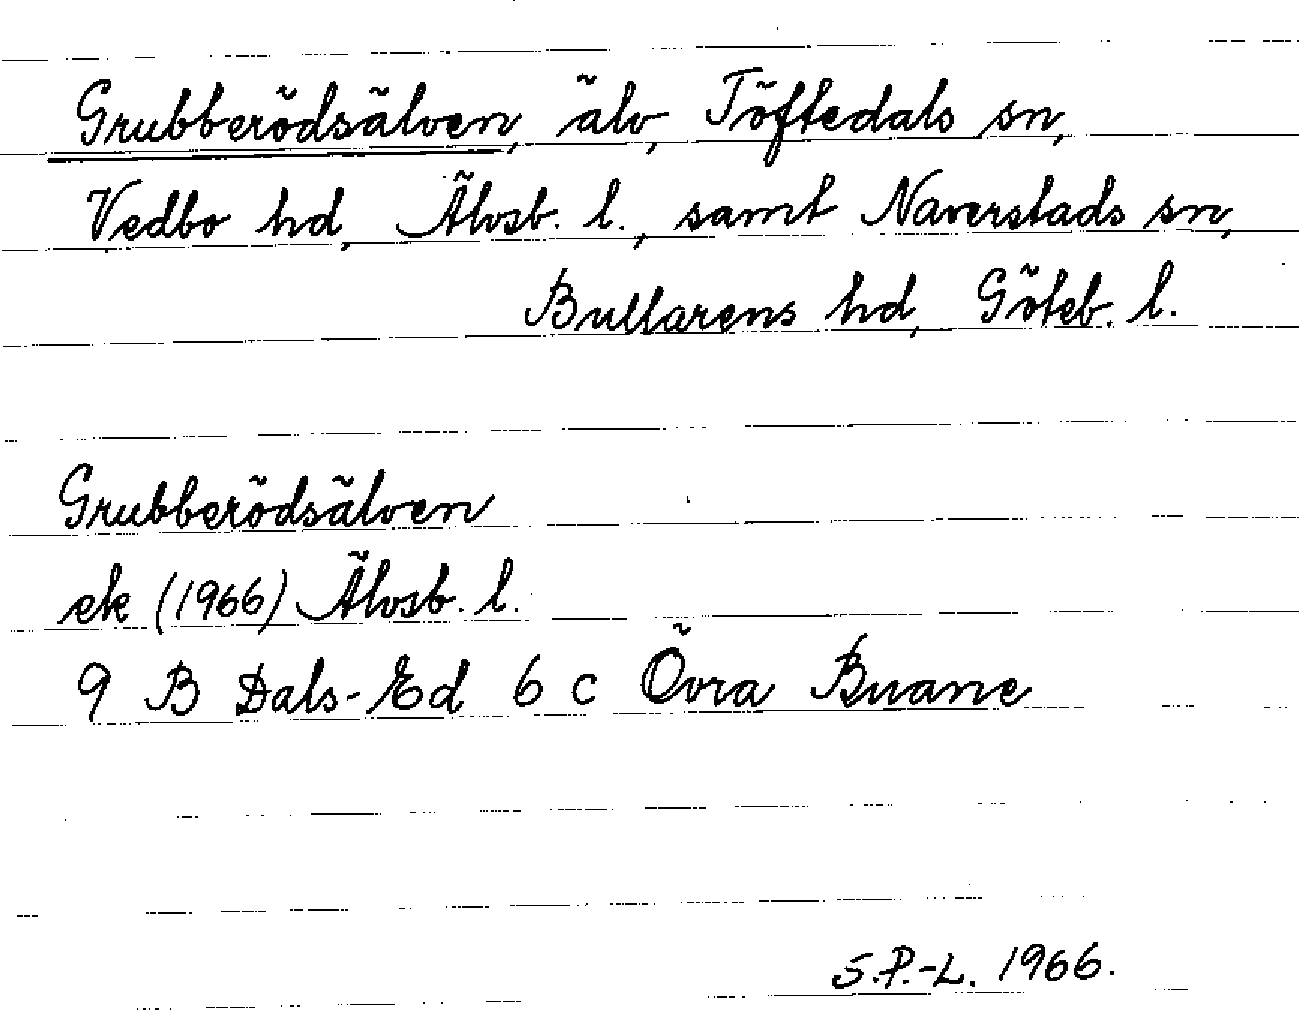 Grubberödsälven, älv, Töftedals sn,
Vedbo hd, Älvsb. l., samt Naverstads sn,
Bullarens hd, Göteb. l.
Grubberödsälven
ek (1966) Älvsb. l.
9 B Dals-Ed 6 c Övra Buane
S.P.-L. 1966.